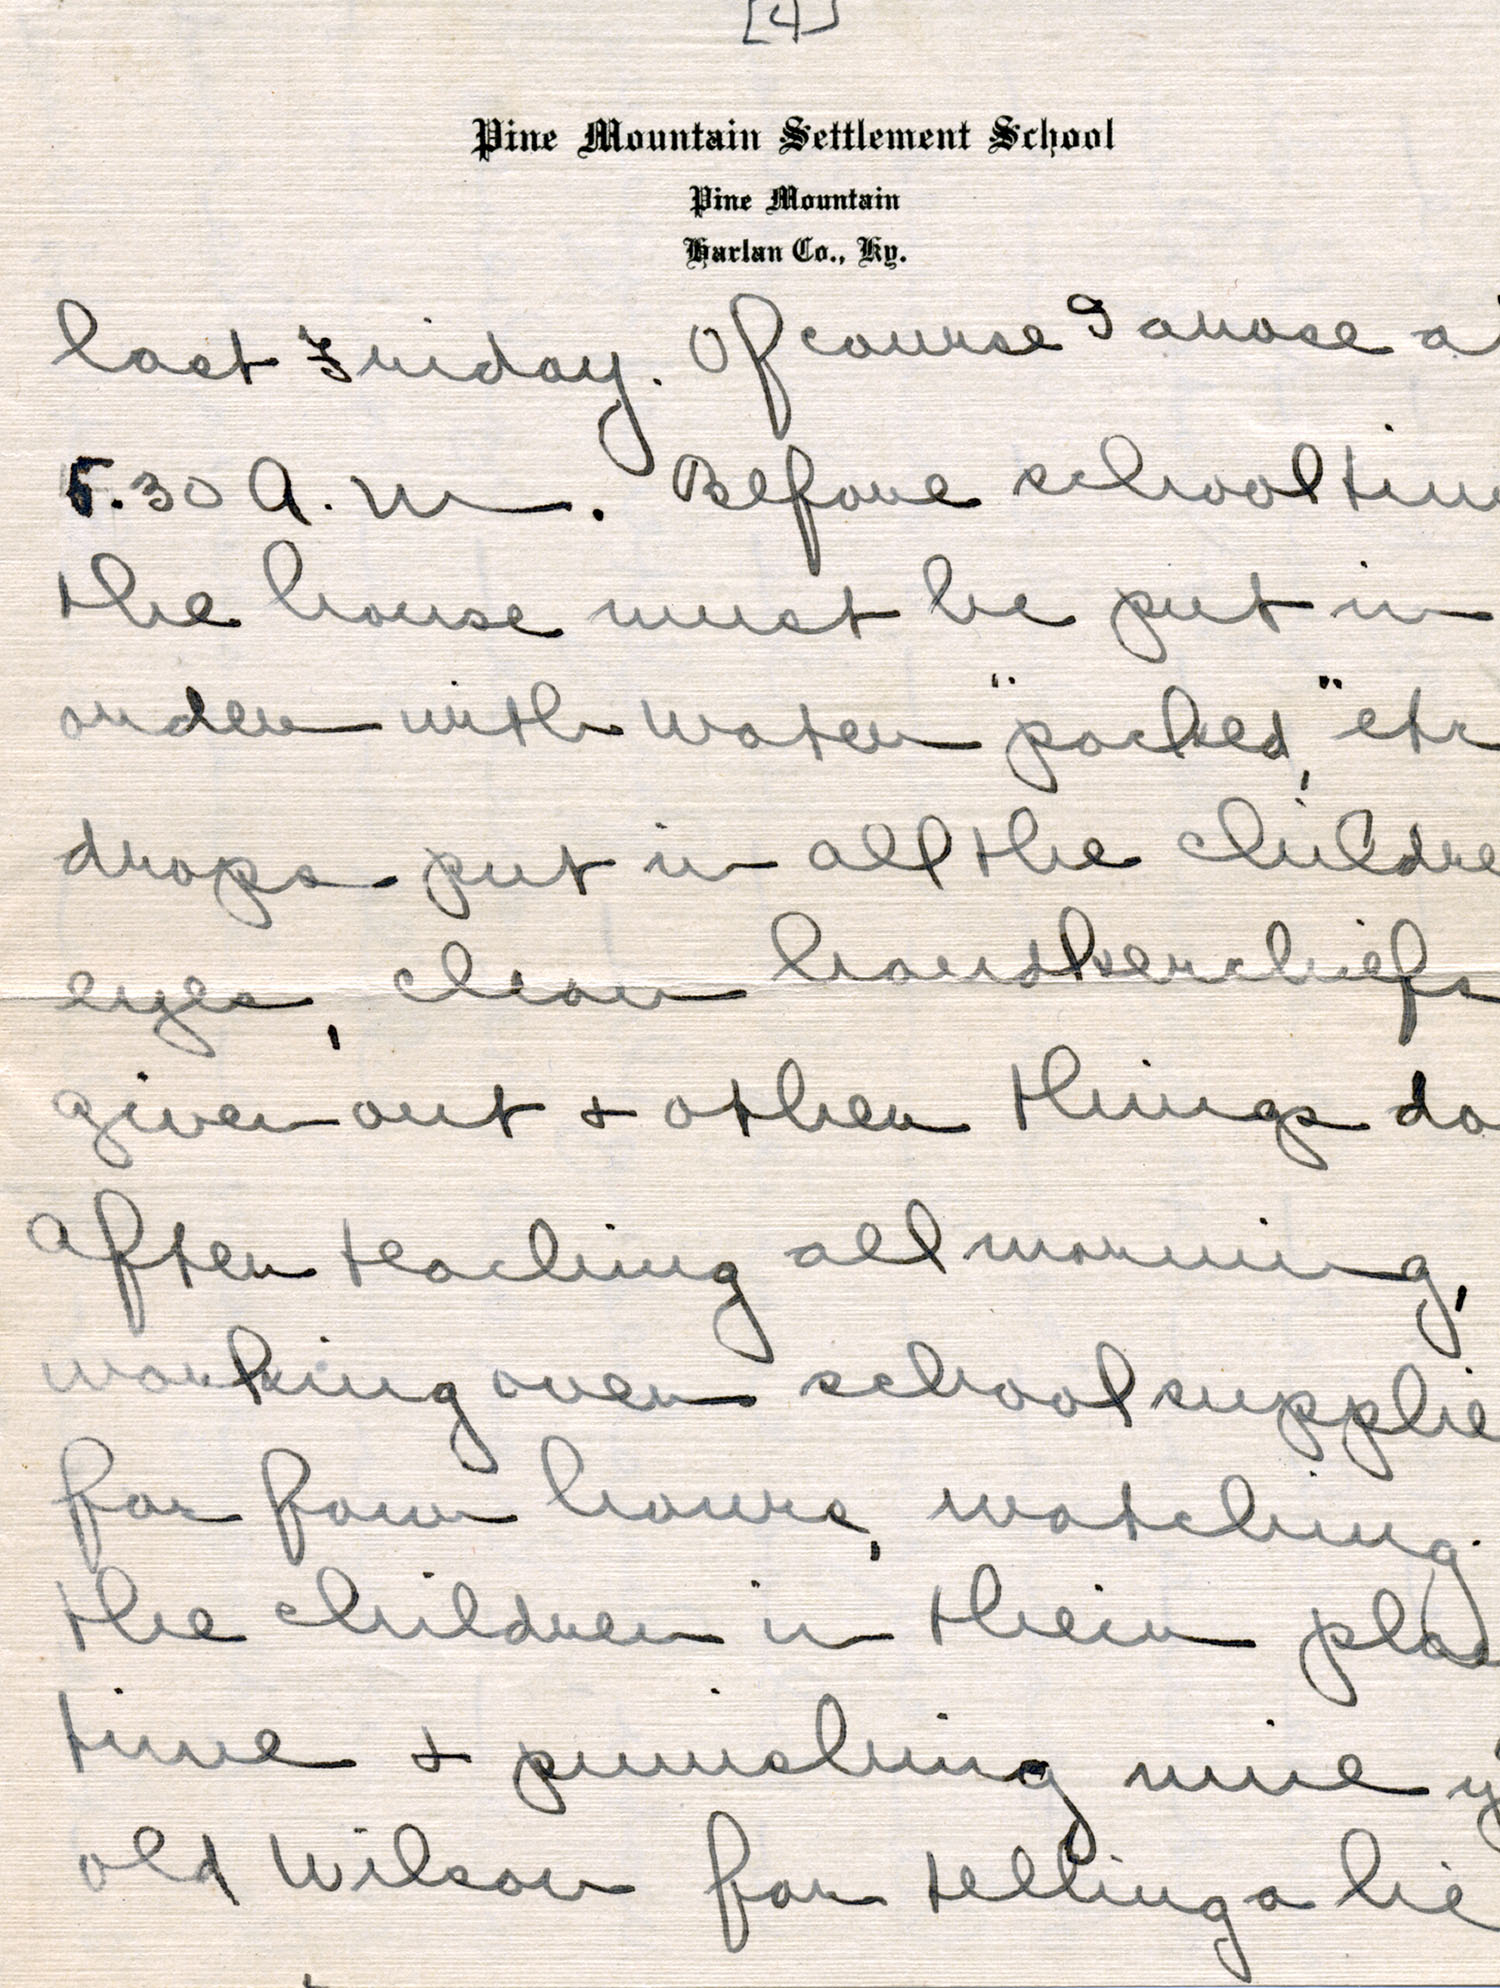 [4]
Pine Mountain Settlement School
Pine Mountain
Harlan Co., Ky.
last Friday. Of course I arose a
5.30 A.M. Before school tim
the house must be put in
order with water "packed," etc
drops put in all the childre
eyes, clean handkerchiefs
given out + other things do
After teaching all morning,
working over school supplie
for four hours, watching
the children in their play
time + punishing nine y
old Wilson for telling a lie